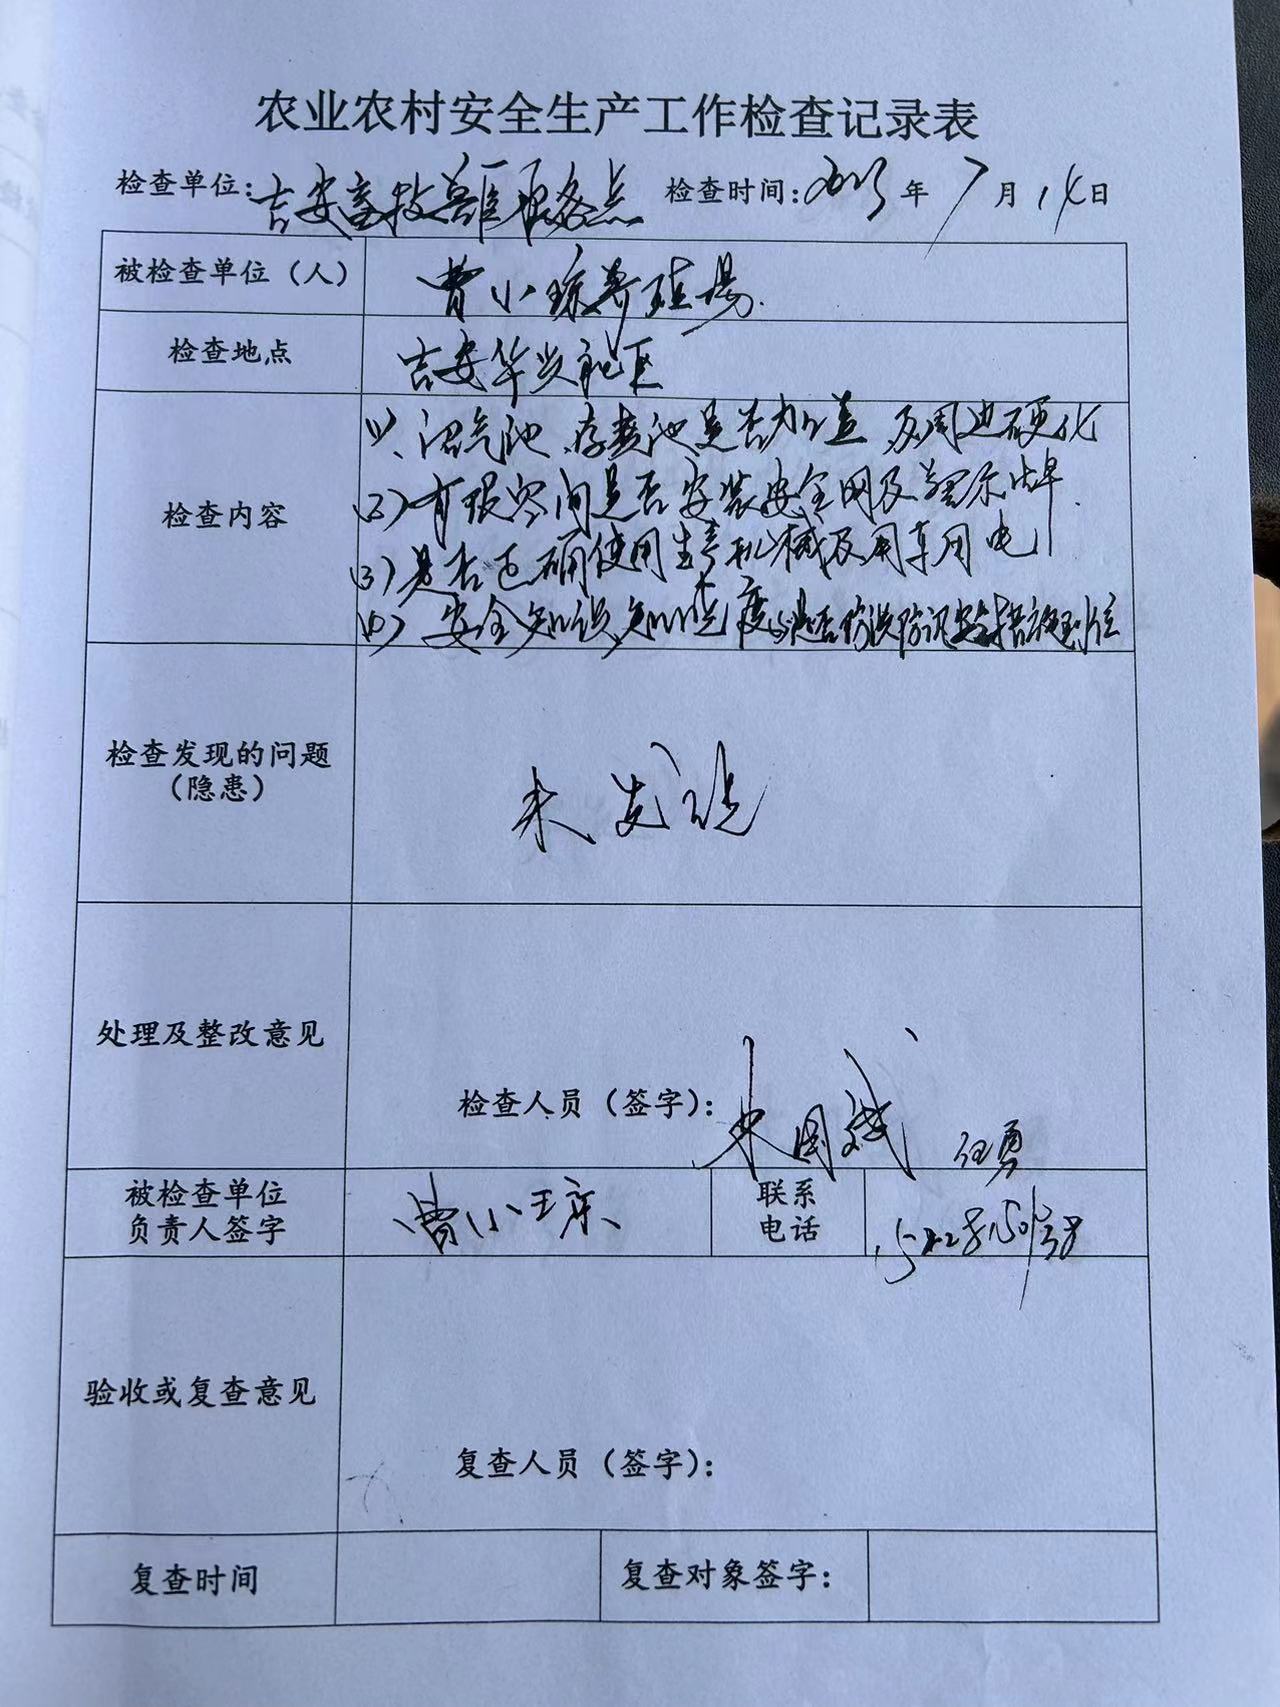 农业农村安全生产工作检查记录表
检查单位:吉安畜牧兽医服务点 检查时间:2023年7月14日
被检查单位（人） 曹小琼养殖場.
检查地点 吉安华兴社区
检查内容
(1)、沼气池、存粪池是否加盖及周边硬化
(2)有限空间是否安装安全网及警示牌.
(3)是否正确使用生产机械及用车用电
(4)安全知识知晓度 是否防洪防汛 措施到位
检查发现的问题
（隐患）
未发现
处理及整改意见
检查人员（签字）: 国斌 任勇
被检查单位
负责人签字
曹小琼
联系
电话
验收或复查意见
复查人员（签字）:
复查时间 复查对象签字: